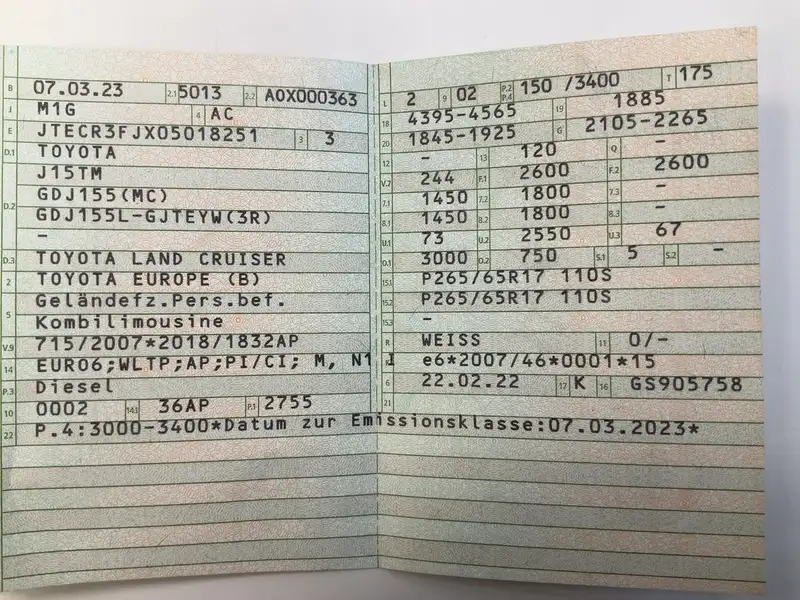 B 07.03.23 2.1 5013 2.2 A0X000363
J M1G 4 AC
E JTECR3FJX05018251 3 3
D.1 TOYOTA
J15TM
D.2 GDJ155(MC)
GDJ155L-GJTEYW(3R)
-
D.3 TOYOTA LAND CRUISER
2 TOYOTA EUROPE (B)
5 Geländefz.Pers.bef.
Kombilimousine
V.9 715/2007*2018/1832AP
14 EURO6;WLTP;AP;PI/CI; M, N1 I
P.3 Diesel
10 0002 14.1 36AP P.1 2755
22 P.4:3000-3400*Datum zur Emissionsklasse:07.03.2023*
L 2 9 02 P.2 P.4 150 /3400 T 175
18 4395-4565 19 1885
20 1845-1925 G 2105-2265
12 - 13 120 Q -
V.7 244 F.1 2600 F.2 2600
7.1 1450 7.2 1800 7.3 -
8.1 1450 8.2 1800 8.3 -
U.1 73 U.2 2550 U.3 67
O.1 3000 O.2 750 S.1 5 S.2 -
15.1 P265/65R17 110S
15.2 P265/65R17 110S
15.3 -
R WEISS 11 0/-
K e6*2007/46*0001*15
6 22.02.22 17 K 16 GS905758
21